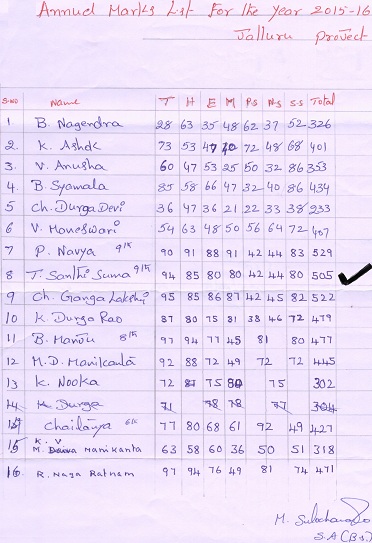 Annual Marks List For the Year 2015-16
Jalluru project
S.NO Name T H E M P.S N.S S.S Total
1 B. Nagendra 28 63 35 48 62 37 52 326
2. K. Ashok 73 53 47 70 72 48 68 401
3. V. Anusha 60 47 53 25 50 32 86 353
4. B. Syamala 85 58 66 47 32 40 86 434
5 Ch. Durga Devi 36 47 36 21 22 33 38 233
6 V. Maneswari 54 63 48 50 56 64 72 407
7 P. Navya 90 91 88 91 42 44 83 529
8 T. Santhi Suma 94 85 80 80 42 44 80 505
9 Ch. Ganga Lakshmi 95 85 86 87 42 45 82 522
10 K. Durga Rao 87 80 75 81 38 46 72 479
11 B. Manju 97 94 77 45 81 80 477
12 M.D. Manikanta 92 88 72 49 72 72 445
13 K. Nooka 72 87 75 80 75 302
14 K. Durga 71 78 78 77 304
Chaitanya 77 80 68 61 92 49 427
K. V
15 M. Manikanta 63 58 60 36 50 51 318
16. R. Naga Ratnam 97 94 76 49 81 74 471
M.
S.A (B.S.)